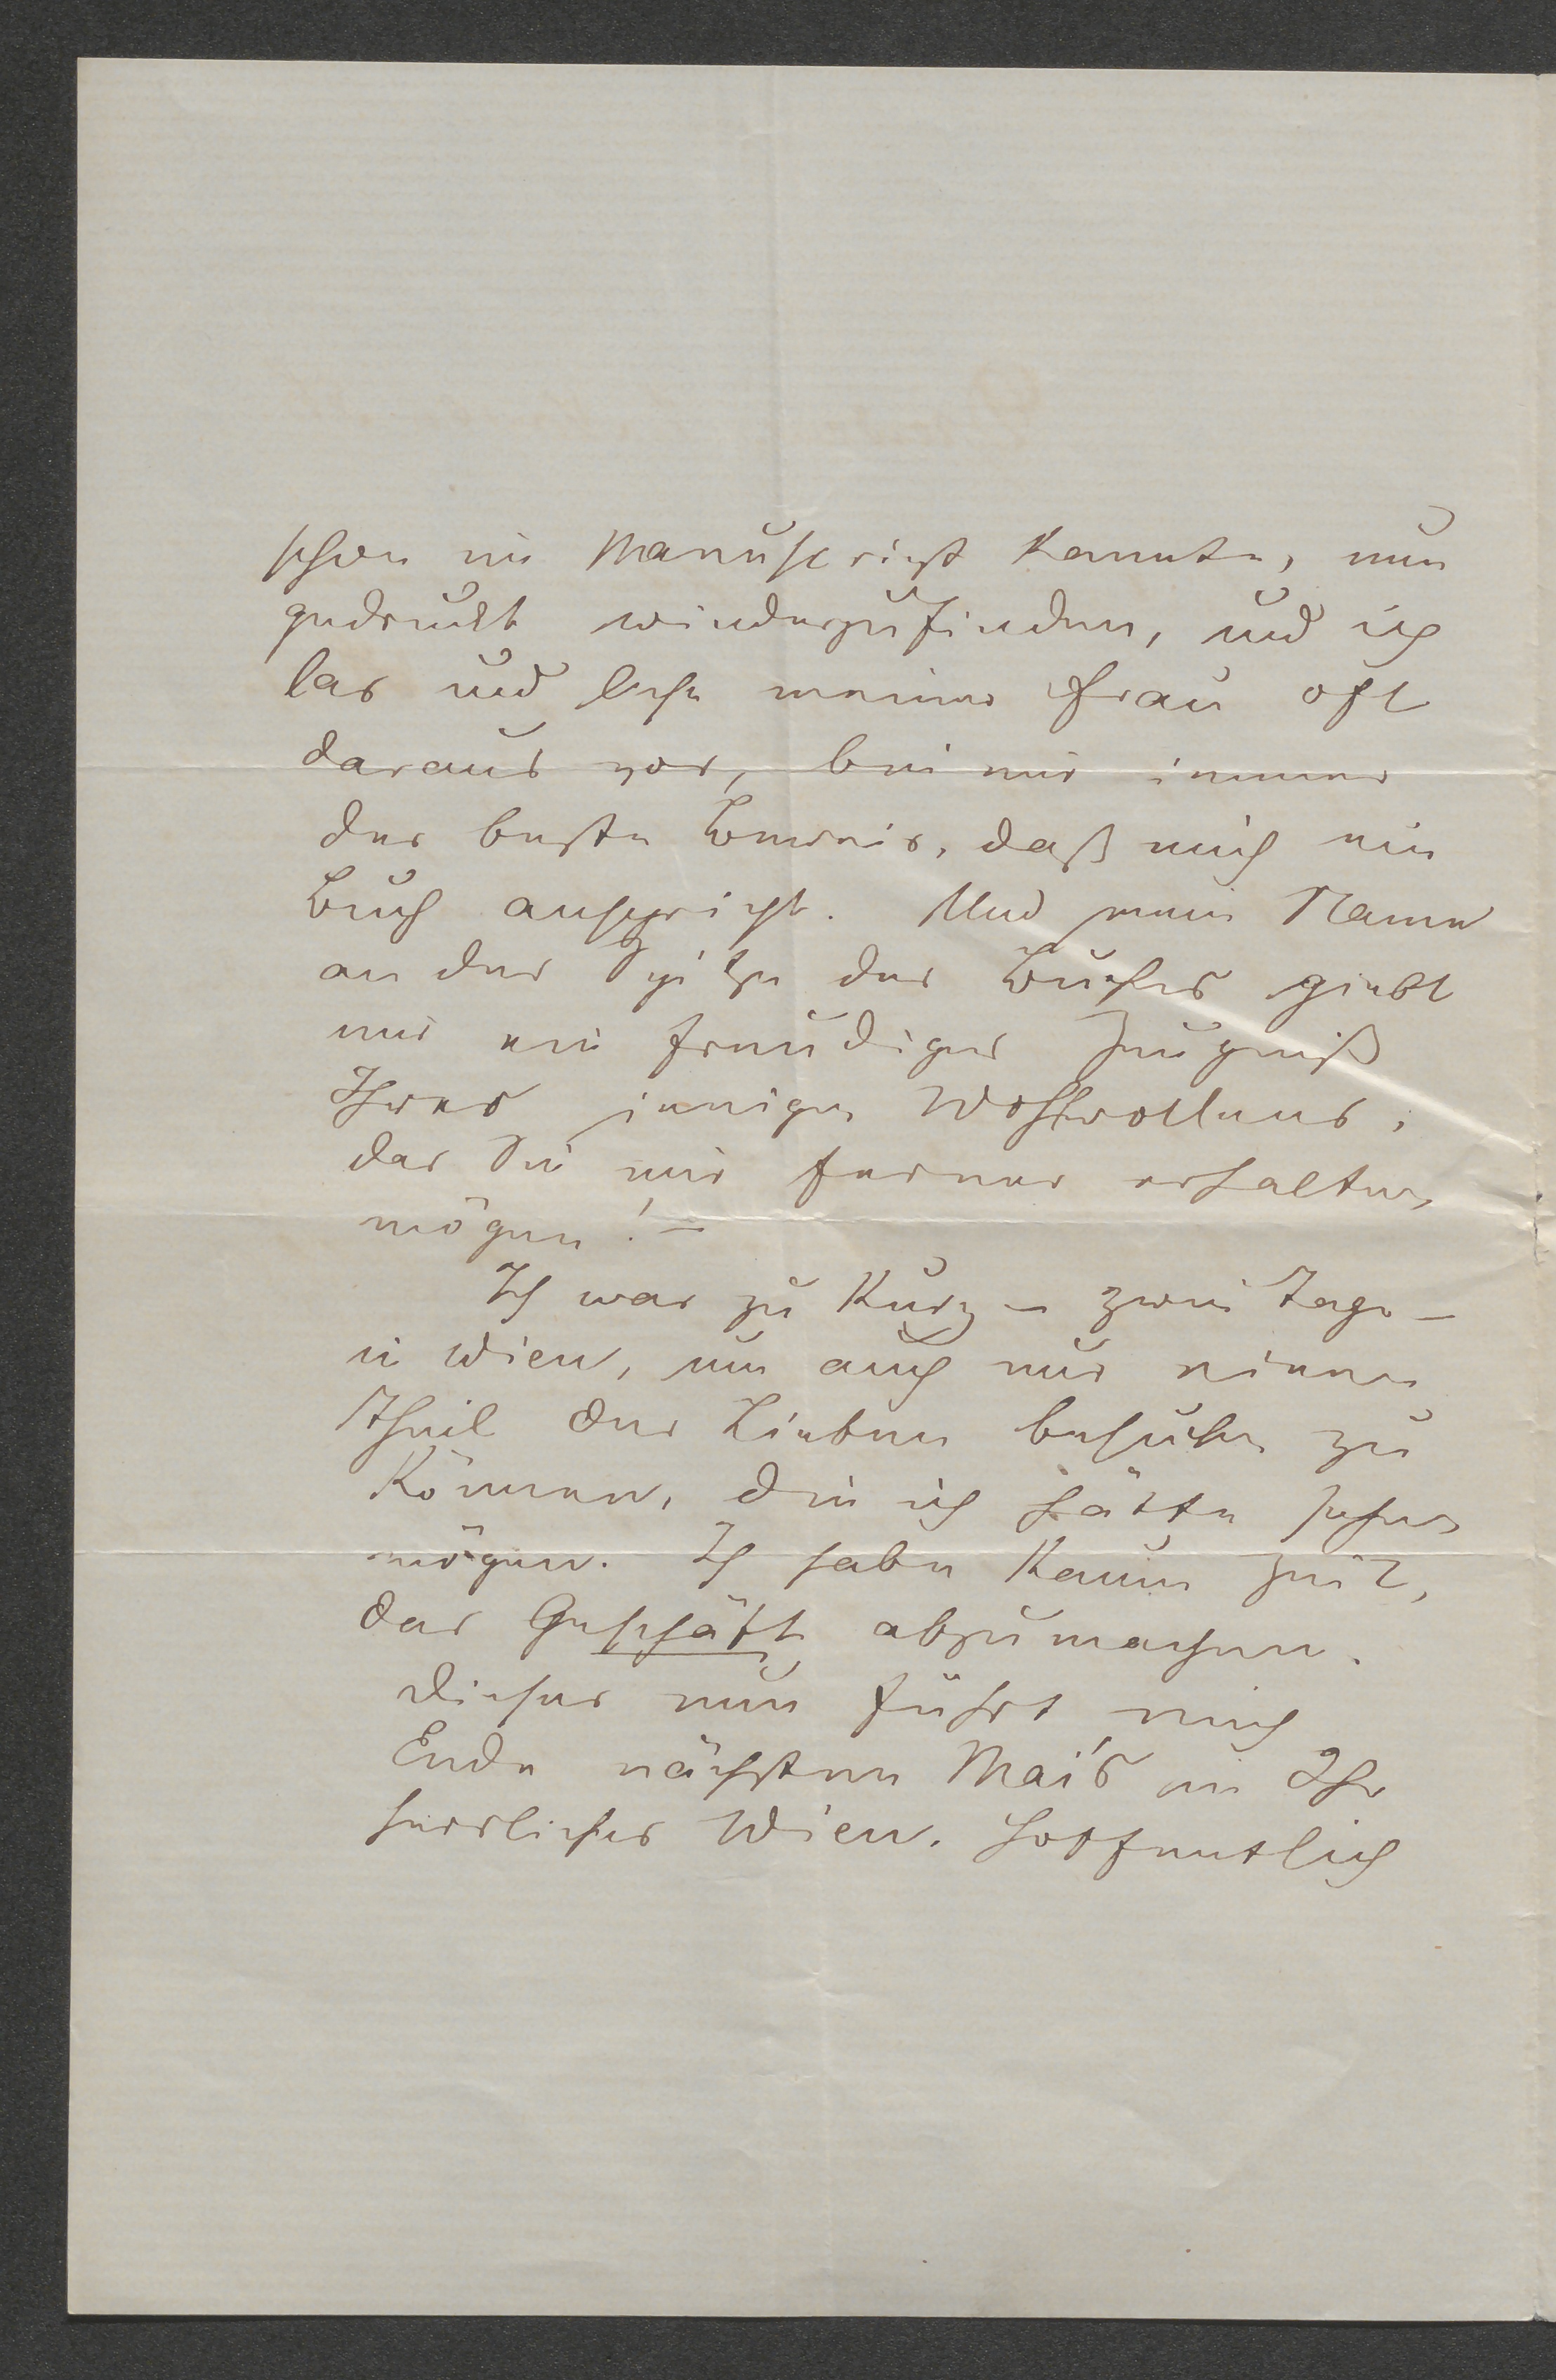 schon im Manuscript kannte, nun
gedruckt wiederzufinden, und ich
las und lese meiner Frau oft
daraus vor, bei mir immer
der beste Beweis, daß mich ein
Buch anspricht. Und mein Name
an der Spitze des Buches giebt
mir ein freudiges Zeugniß
Ihres innigen Wohlwollens,
das Sie mir ferner erhalten
mögen! –
Ich war zu kurz – zwei Tage –
in Wien, um auch nur einen
Theil der Lieben besuchen zu
können, die ich hätte sehen
mögen. Ich habe kaum Zeit,
das Geschäft abzumachen.
Dieses nun führt mich
Ende nächsten Mai's in Ihr
herrliches Wien. Hoffentlich